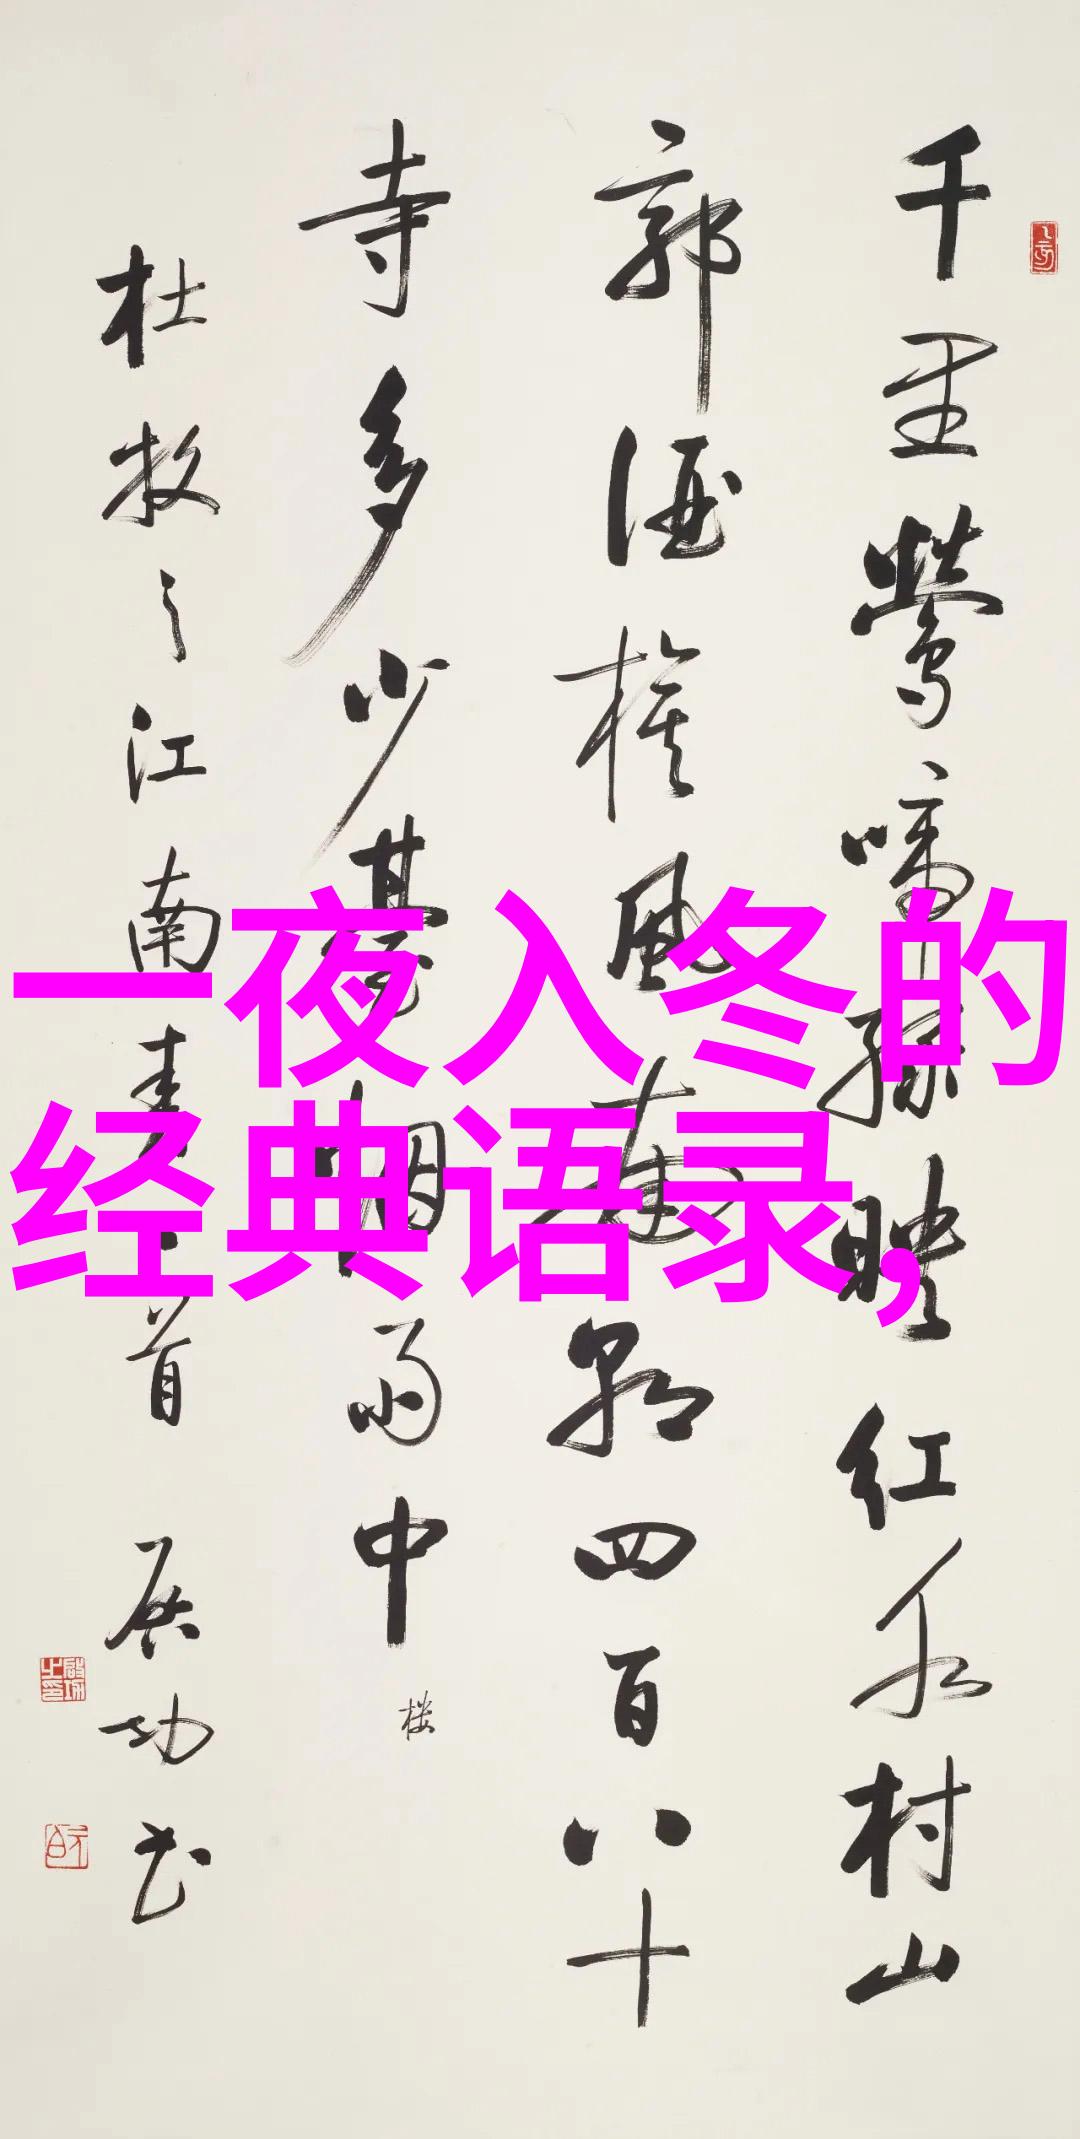 千里鶯啼綠映紅水村山
郭酒旗風南朝四百八十
寺多少臺烟雨中 楼
杜牧之江南春一首 启功书
一夜入冬的
经典语录,